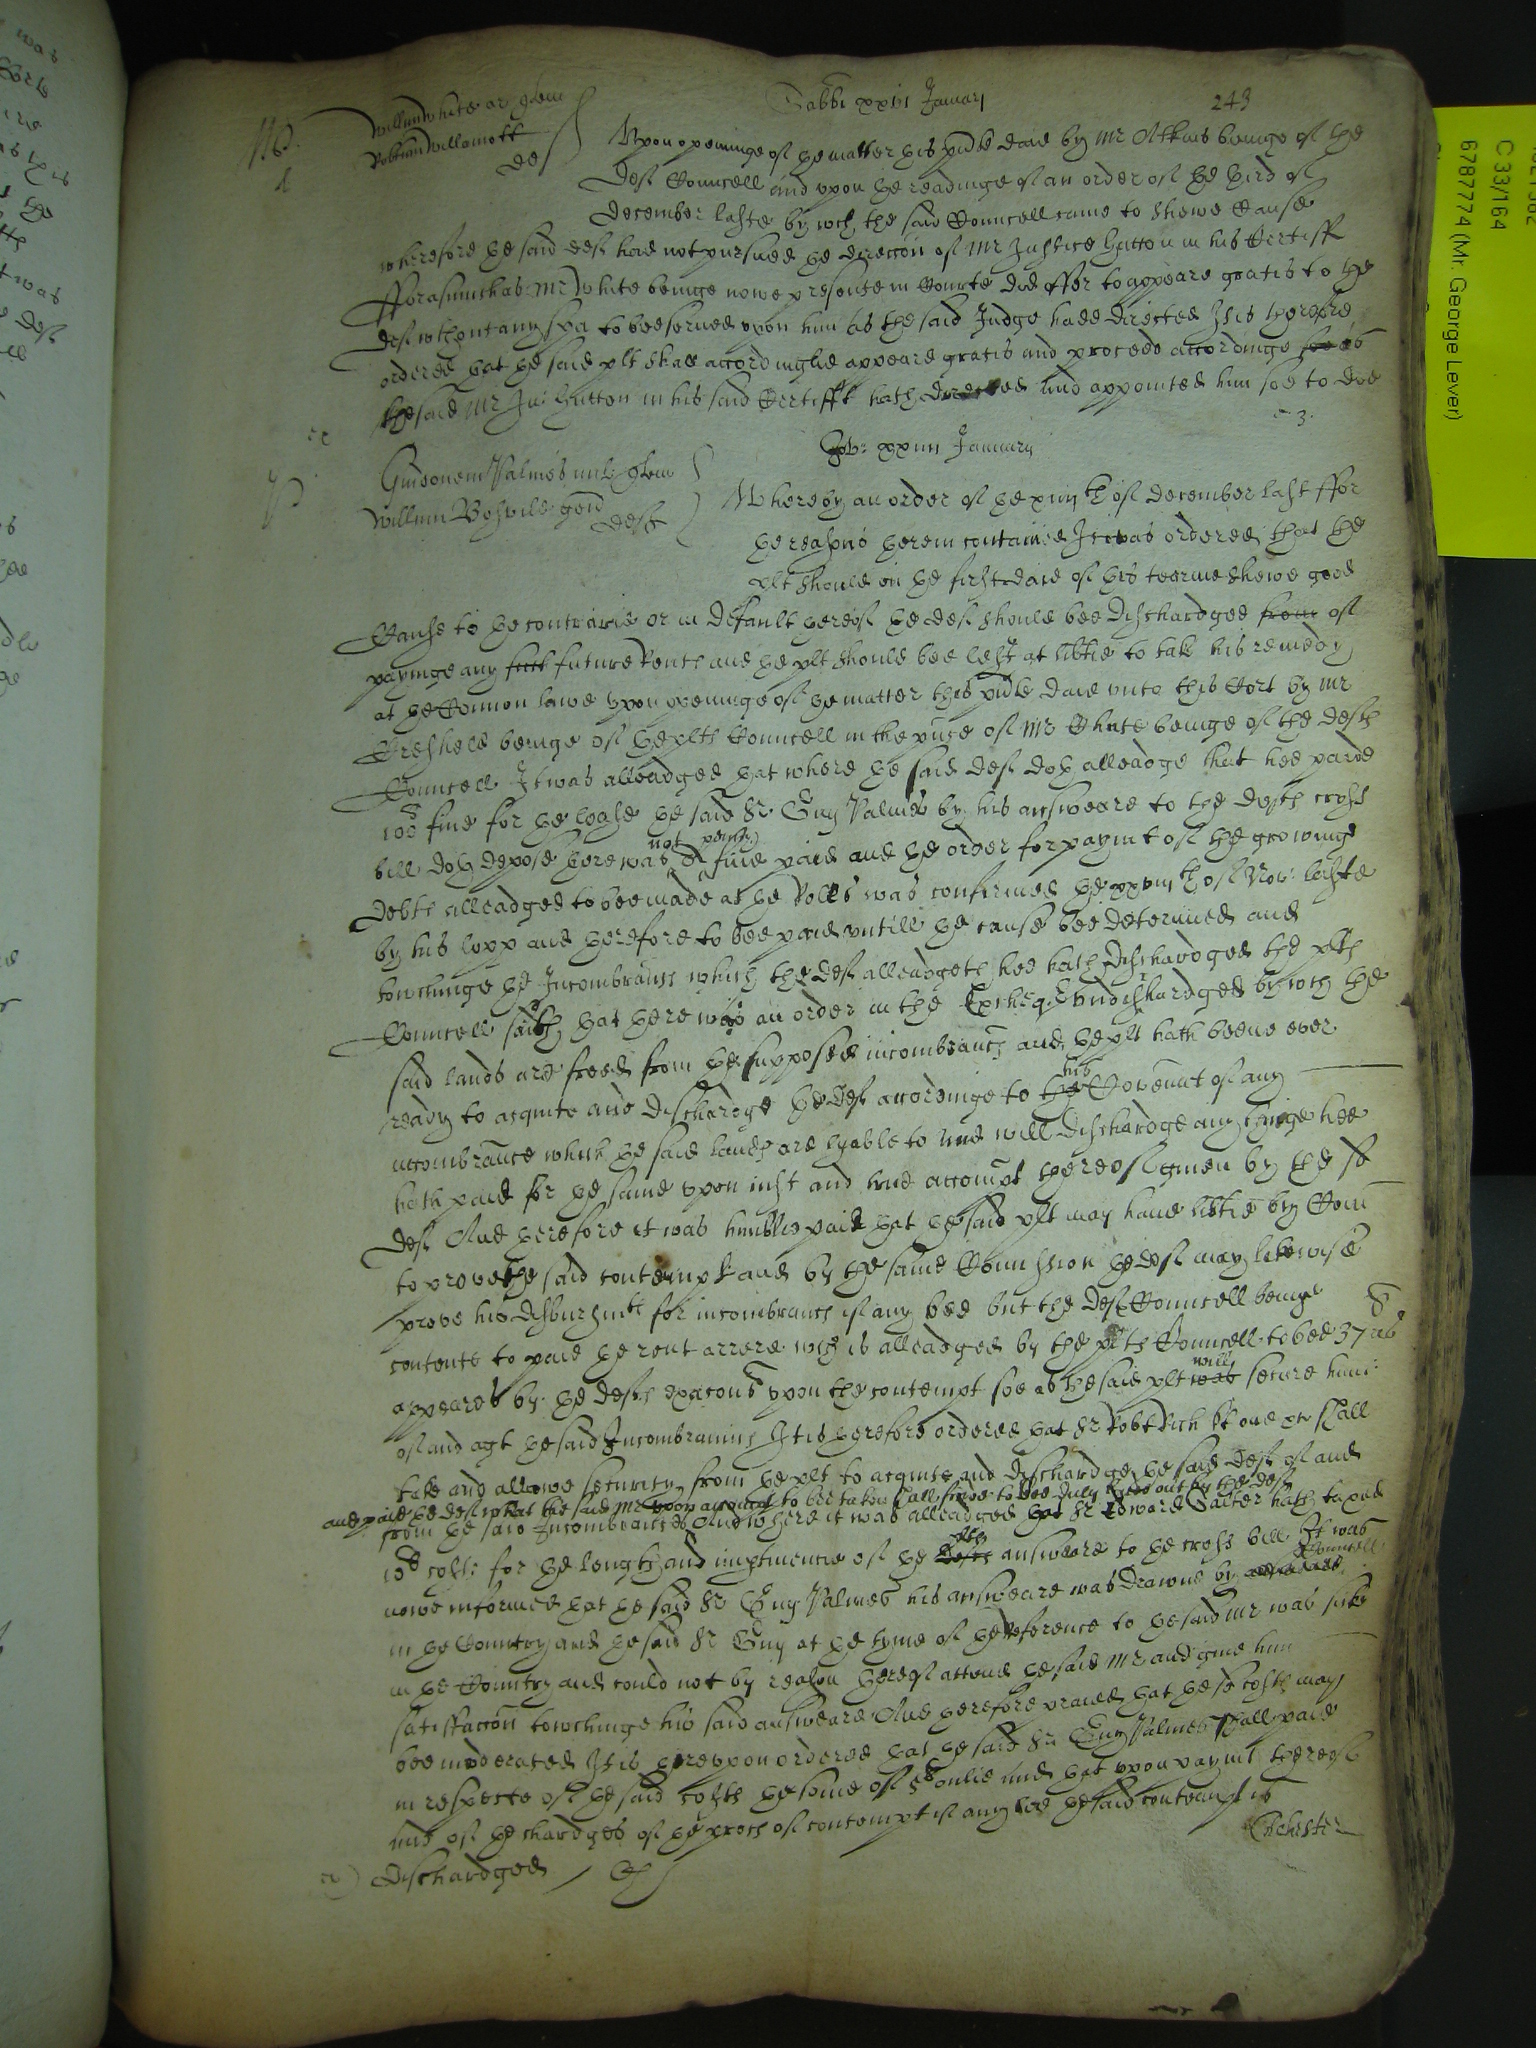 Sabbi xxvii Januarij 243
Willm White ar quer
Robtum Willamott
def
Upon openinge of the matter this pnte daie by Mr Atkins beinge of the
def Councell and upon the readinge of an order of the third of
December laste by wch the said Councell came to shewe Cause
wherefore the said def had not pursued the direccon of Mr Justice Hutton in his Certiff
fforasmuch as Mr White beinge nowe presente in Courte did offer to appeare gratis to the
def without any spa to bee served upon him as the said Judge hadd directed It is therefore
ordered that the said plt shall accordinglie appeare gratis and proceede accordinge as
the said Mr Ju: Hutton in his said Certifft hath directed and appointed him soe to doe
Guidonem Palmes mil quer
Willm Bosvile gen
deft
Jov: Januarij
Whereby an order of the xiiijth of December last ffor
the reasons therein contained It was ordered that the
plt should on the first daie of this tearme shewe good
Cause to the contrarie or in default thereof the def should bee dischardged from of
payinge any future Rents and the plt should bee left at libtie to take his remedy
at the Common lawe Upon openinge of the matter this pnte daie unto this Cort by Mr
Cresheld beinge of the plts Councell in the pnce of Mr White beinge of the defts
Councell It was alleadged that where the said def doth alleadge that hee payed
100 fine for the lease the said Sr Guy Palmes by his answeare to the defts cross
bill doth depose there was not a fine paid and the order for paymt of the growinge
debts alleadged to bee made at the Rolls was confirmed the of Nov: laste
by his lopp and therefore to bee paid untill the cause bee determined and
towchinge the Incombrances which the def alleadgeth hee hath dischardged the plts
Councell saith that there was an order in the Excheqr undischardged by wch the
said lands are freed from the supposed incombrances and the plt hath beene ever
ready to acquite and dischardge the def accordinge to his Covenant of any
incombrance which the said lands are lyable to and will dischardge any thinge hee
hath paid for the same upon just and true accompt thereof given by the sd
def And therefore it was humblie praid that the said plt may have libtie by Com
to prove the said contempt and by the same Comission the def may likewise
prove his disbursmts for incombrances if any bee but the defts Councell beinge
contente to paie the rent arrere wch is alleadged by the plts Councell to bee 37 as
appeares by the defts exacons upon the contempt soe as the said plt will secure him
of and agt the said Incombrances It is therefore ordered that Sr Robt Rich kt one &c shall
take and allowe security from the plt to acquite and dischardge the said def of and
and paie the def what the said Mr upon accompt to bee taken shall finde to bee duly laid out by the def
from the said Incombrances And where it was alleadged that Sr Edward Salter hath taxed
costs for the length and imptinencie of the plts answeare to the cross bill It was
nowe informed that the said Sr Guy Palmes his answeare was drawne by Councell
in the Country and the said Sr Guy at the tyme of the Reference to the said Mr was sicke
in the Country and could not by reason thereof attend the said Mr and give him
satisfaccon towchinge his said answeare And therefore praied that the sd costs may
bee moderated It is thereupon ordered that the said Sr Guy Palmes shall paie
in respecte of the said costs the some of onlie and that upon paymt thereof
and of the chardges of the proces of contempt if any bee the said contempt is
dischardged
Chichester
C 33/164
6787774 (Mr. George Lever)